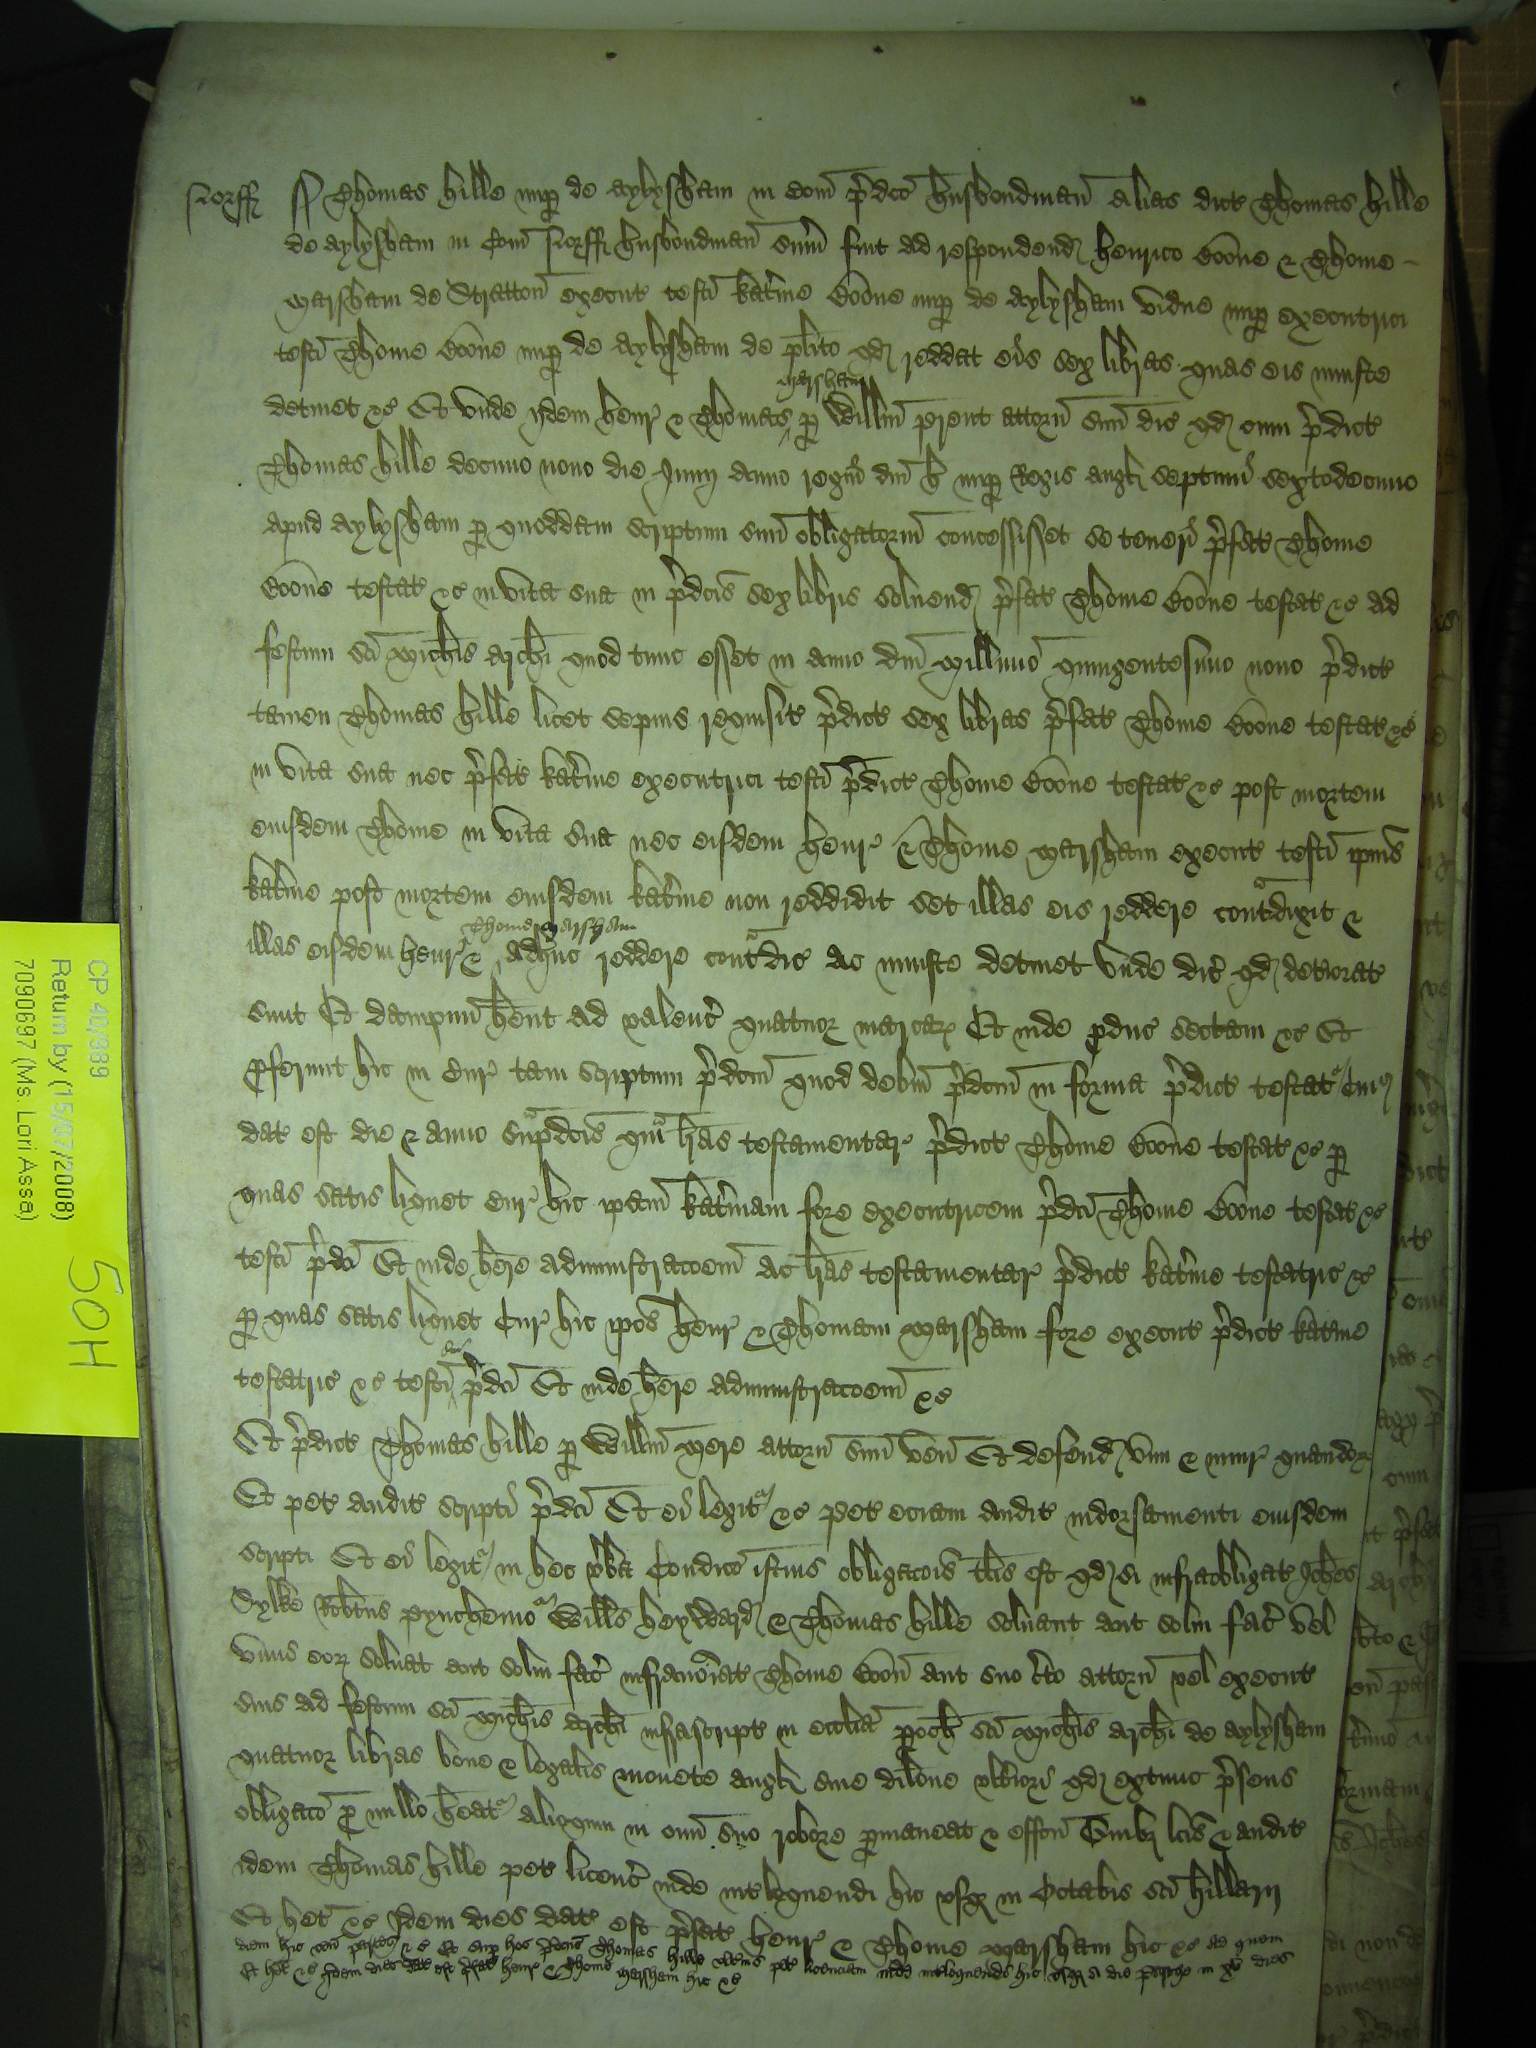 Norff
Thomas Hille nup de Aylysham in Com p'dco husbondman alias dict Thomas Hille
de Aylysham in Com Norff husbondman sum fuit ad respondend Henrico Coone & Thome
Marsham de Stratton execut testi Kat'ine Coone nup de Aylysham vidue nup executrici
testi Thome Coone nup de Aylysham de plito qd reddat eis sex libras quas eis iniuste
Marsham
detinet &c Et unde ijdem Henr & Thomas p Willm attorn suu dic qd cum p'dict
Thomas Hille decimo nono die Junij anno regni dni H nup Regis Angl septimi sextodecimo
apud Aylysham p quoddam scriptum suu obligatoriu concessisset se teneri p'fat Thome
Coone testat &c in vita sua in p'dcis sex libris solvend p'fat Thome Coone testat &c ad
festum sci Mich'is Arch'i quod tunc esset in anno dni Millimo quingentesimo nono p'dict
tamen Thomas Hille licet sepius requisit p'dict sex libras p'fat Thome Coone testat &c
in vita sua nec p'fat Kat'ine executrici testi p'dict Thome Coone testat &c post mortem
eiusdem Thome in vita sua nec eisdem Henr & Thome Marsham execut testi ipius
Kat'ine post mortem eiusdem Kat'ine non reddidit set illas eis reddere contradixit &
Thome Marsham
illas eisdem Henr & adhuc reddere contradic ac iniuste detinet unde dic qd deteriorat
sunt Et dampnu hent ad valenc quatuor marcar Et inde produc sectam &c Et
proferunt hic in Cur tam scriptum p'dcm quod debitu p'dcm in forma p'dict testat cuius
dat est die & anno sup'dcis qm l'ras testamentar p'dict Thome Coone testat &c p
quas satis liquet Cur hic ipam Kat'inam fore executricem p'dci Thome Coone testat &c
testi p'dci Et inde here administracoem ac l'ras testamentar p'dict Kat'ine testatric &c
p quas satis liquet Cur hic ipos Henr & Thomam Marsham fore execut p'dict Kat'ine
testatric &c testi p'dci Et inde here administracoem &c
Et p'dict Thomas Hille p Willm Mere attorn suu ven Et defend vim & iniur quando &c
Et pet audit scripti p'dci Et ei legit &c pet eciam audit indorsamenti eiusdem
scripti Et ei legit in hec v'ba Condico istius obligacois talis est qd si infraobligat Joh'es
Dylke Rob'tus Pynchemo Will's Heyward & Thomas Hille solvant aut solui fac' vel
unus eor solvat aut solui fac' infranoiat Thome Coon aut suo c'to attorn vel execut
suis ad festum sci Mich'is Arch'i infrascript in ecclia poch sci Mich'is Arch'i de Aylysham
quatuor libras bone & legalis monete Angl sine dilone ult'iori qd extunc p'sens
obligaco p nullo heat alioquin in omi suo robore pmaneat & effcu Quib lcis & audit
idem Thomas Hille pet licenc inde int'loquendi hic usq in Octabis sci Hillarij
Et het &c Idem dies dat est p'fat Henr & Thome Marsham hic &c ad quem
diem hic ven partes &c Et sup hoc p'dcus Thomas Hille ult'ius pet licenciam inde int'loquendi hic usq a die Pasche in xv dies
Et het &c Idem dies dat est p'fat Henr & Thome Marsham hic &c
CP 40/989
Return by (15/07/2008)
7090697 (Ms. Lori Assa)
50H